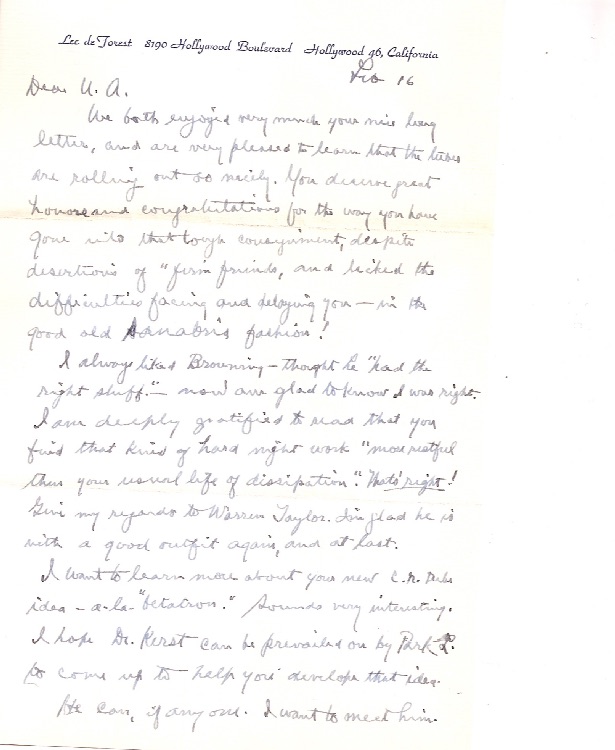 Lee de Forest 8190 Hollywood Boulevard Hollywood 46, California
Feb 16
Dear U. A.
We both enjoyed very much your nice long
letter, and are very pleased to learn that the tubes
are rolling out so nicely. You deserve great
honors and congratulations for the way you have
gone into that tough consignment, despite
desertions of "firm friends, and licked the
difficulties facing and delaying you — in the
good old Sanabria fashion!
I always liked Browning — thought he "had the
right stuff." — now am glad to know I was right.
I am deeply gratified to read that you
find that kind of hard night work "more restful
than your usual life of dissipation". That's right!
Give my regards to Warren Taylor. I'm glad he is
with a good outfit again, and at last.
I want to learn more about your new C.R. tube
idea – a-la- "betatron." Sounds very interesting.
I hope Dr. Kerst can be prevailed on by Park
to come up to help you develope that idea.
He can, if anyone. I want to meet him.